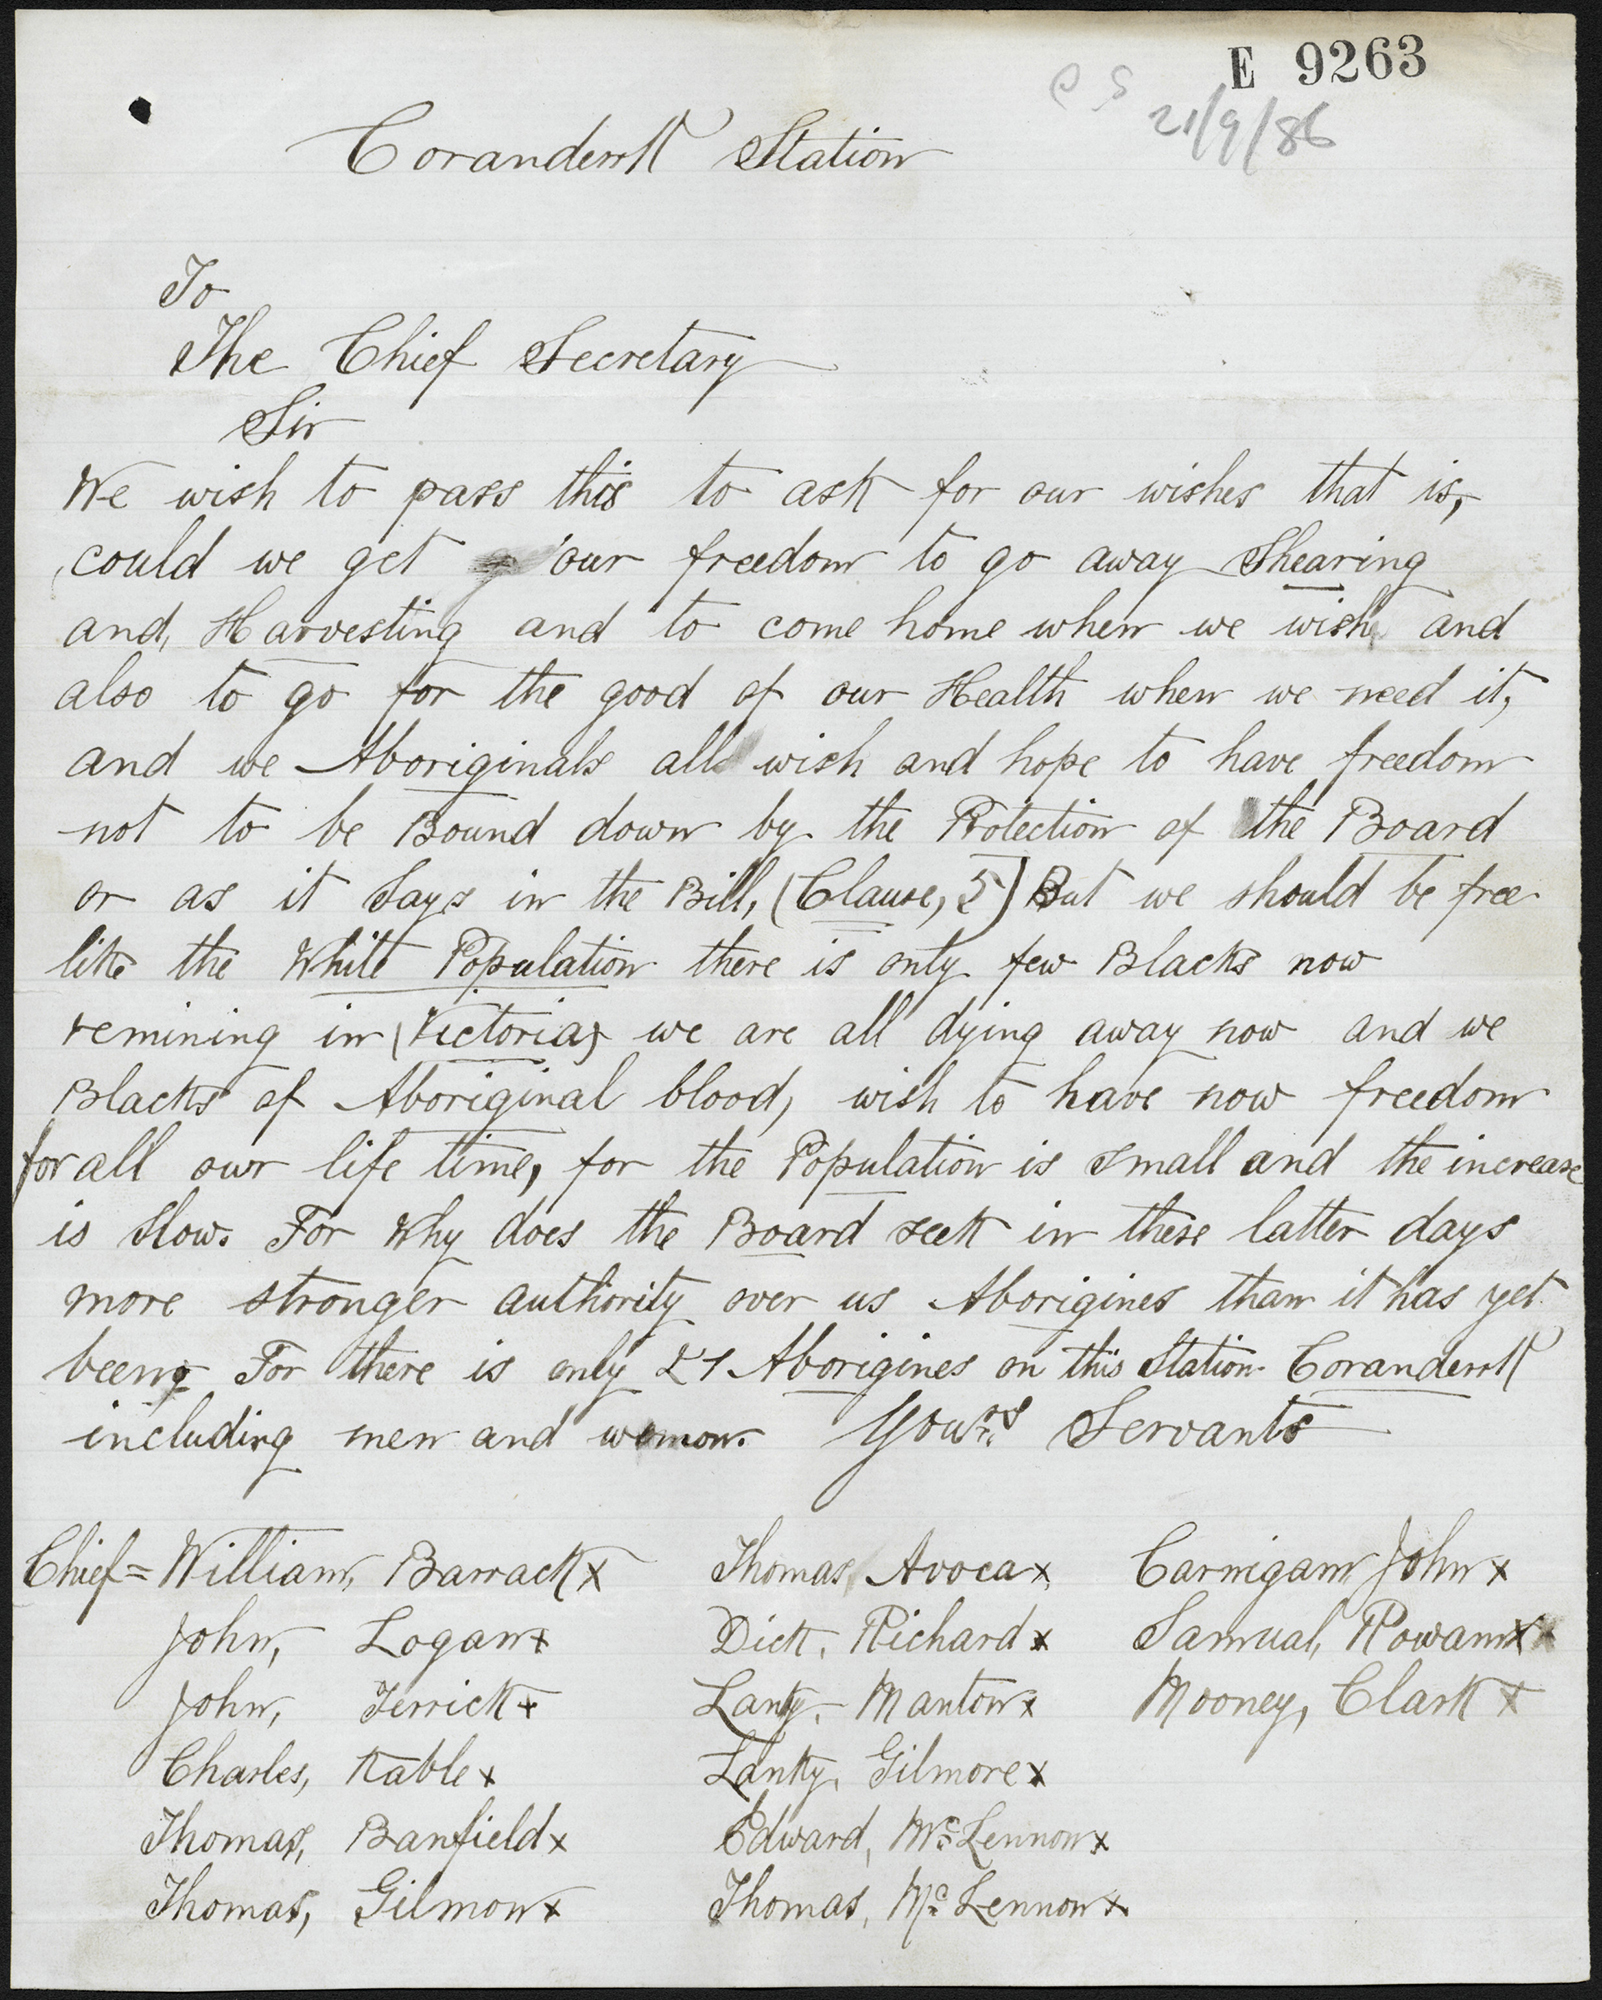 E 9263
C S
21/9/86
Coranderrk Station
To
The Chief Secretary
Sir
We wish to pass this to ask for our wishes that is,
could we get our freedom to go away Shearing
and, Harvesting and to come home when we wish and
also to go for the good of our Health when we need it,
and we Aboriginals all wish and hope to have freedom
not to be Bound down by the Protection of the Board
or as it says in the Bill, (Clause, 5) But we should be free
like the White Population there is only few Blacks now
remining in (Victoria) we are all dying away now and we
Blacks of Aboriginal blood, wish to have now freedom
for all our life time, for the Population is small and the increase
is slow. For Why does the Board seek in these latter days
more stronger authority over us Aborigines than it has yet
been For there is only 21 Aborigines on this Station Coranderrk
including men and women. Yours Servants
Chief = William, Barrack x Thomas Avoca x Carnigam John x
John, Logan x Dick, Richard x Samual, Rowan x
John, Terrick x Lanky, Manton x Mooney, Clark x
Charles, Kable x Lanky, Gilmore x
Thomas, Banfield x Edward, McLennon x
Thomas, Gilmon x Thomas, McLennon x